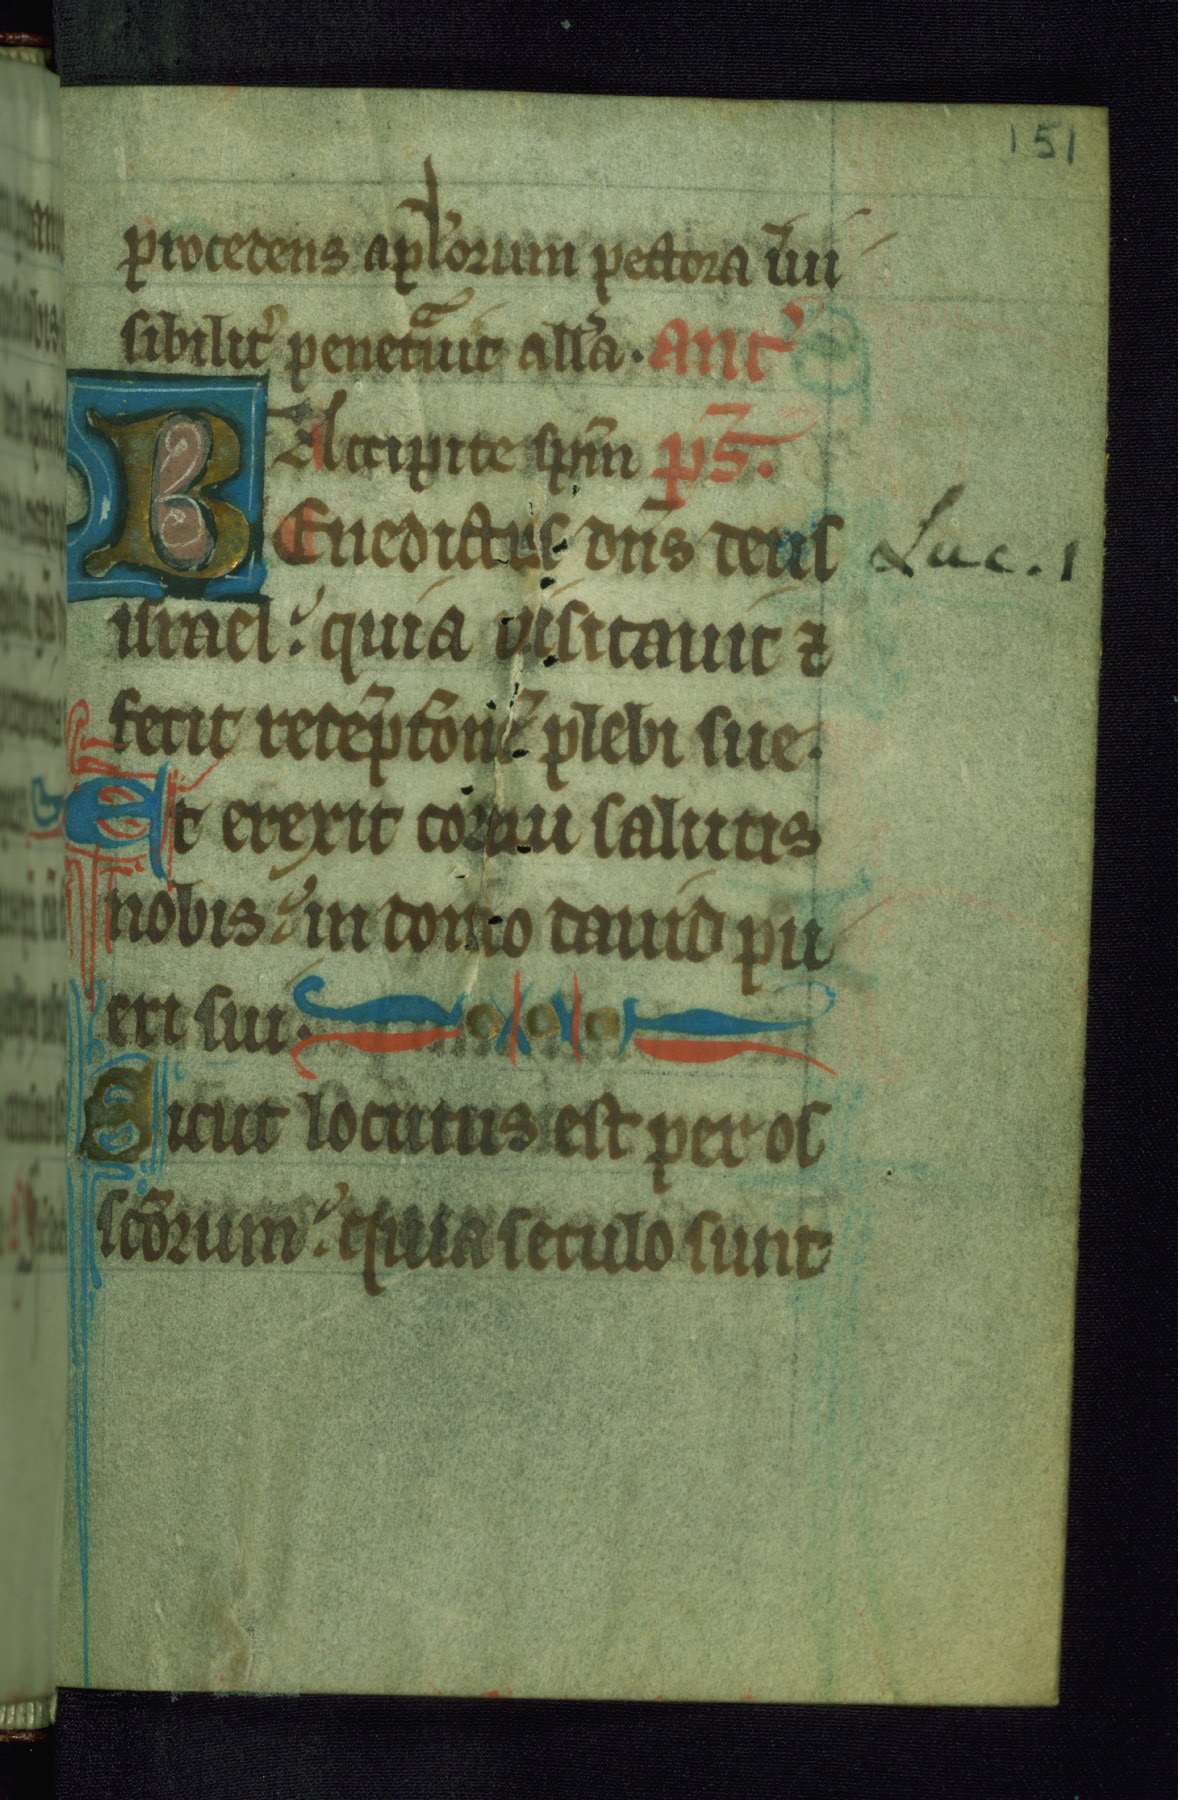 151
procedens ap̄lorum pectora īui
sibilit̉ penet̾uit all̄a. ant̉
Accipite spm̄ pS̄.
BEnedictus dn̄s deus
Luc. 1
israel : quia uisitauit ⁊
fecit redēptōne plebi sue.
Et erexit cornu salutis
nobis : in domo dauid pu
eri sui.
Sicut locutus est per os
scōrum : qui a seculo sunt